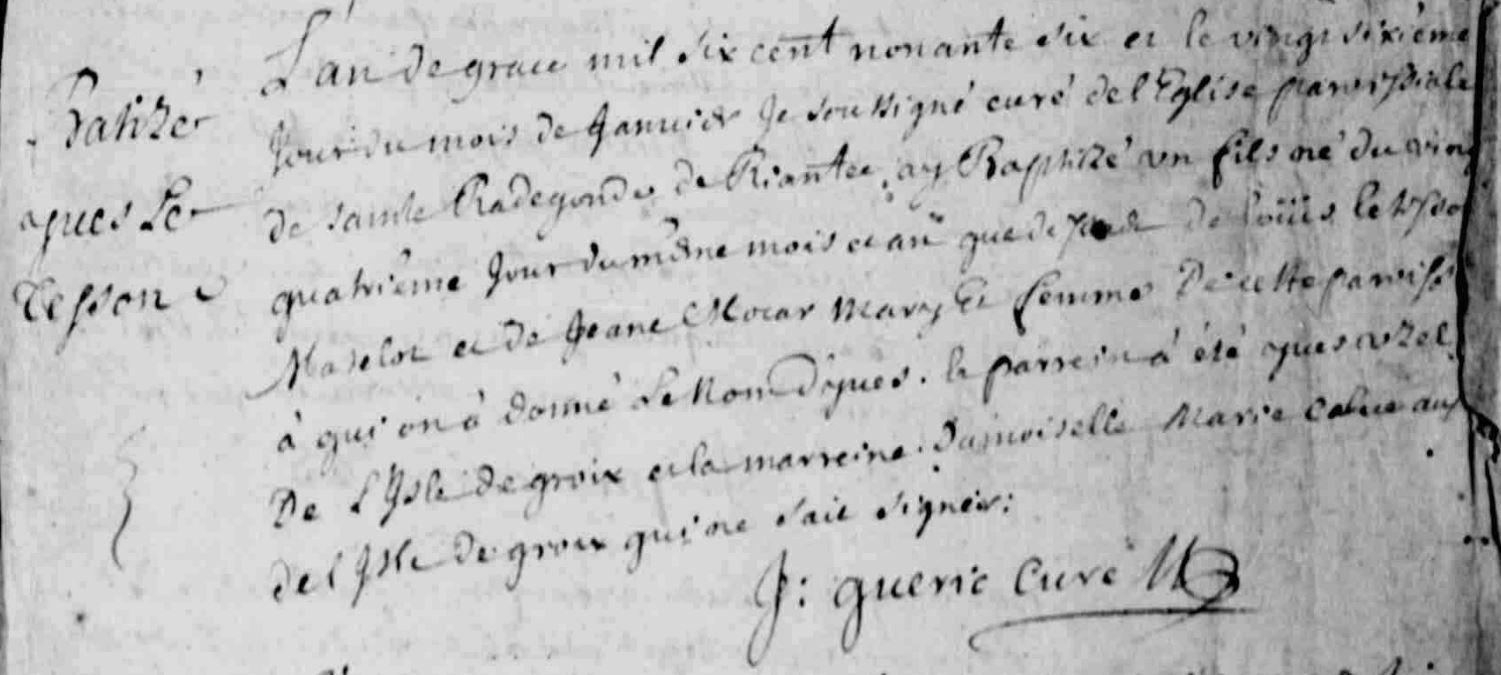 Batizé
ques Le
Tesson
L'an de grace mil six cent nonante six et le vingt sixième
Jour du mois de Januier Je soussigné curé de l'Eglise paroissiale
de sainte Radegonde de Riantec, ay Baptizé un fils né du vin
quatrième Jour du même mois et an que de de Loüis le
Matelot et de Jeane Mary Et femme De cette paroisse
à qui on à donné Le Nom Djques . le parrein à été Jques
De L'Isle de groix et la marreine . Damoiselle Marie aussy
de l'Isle de groix qui ne sait signer :
J : gueric Curé